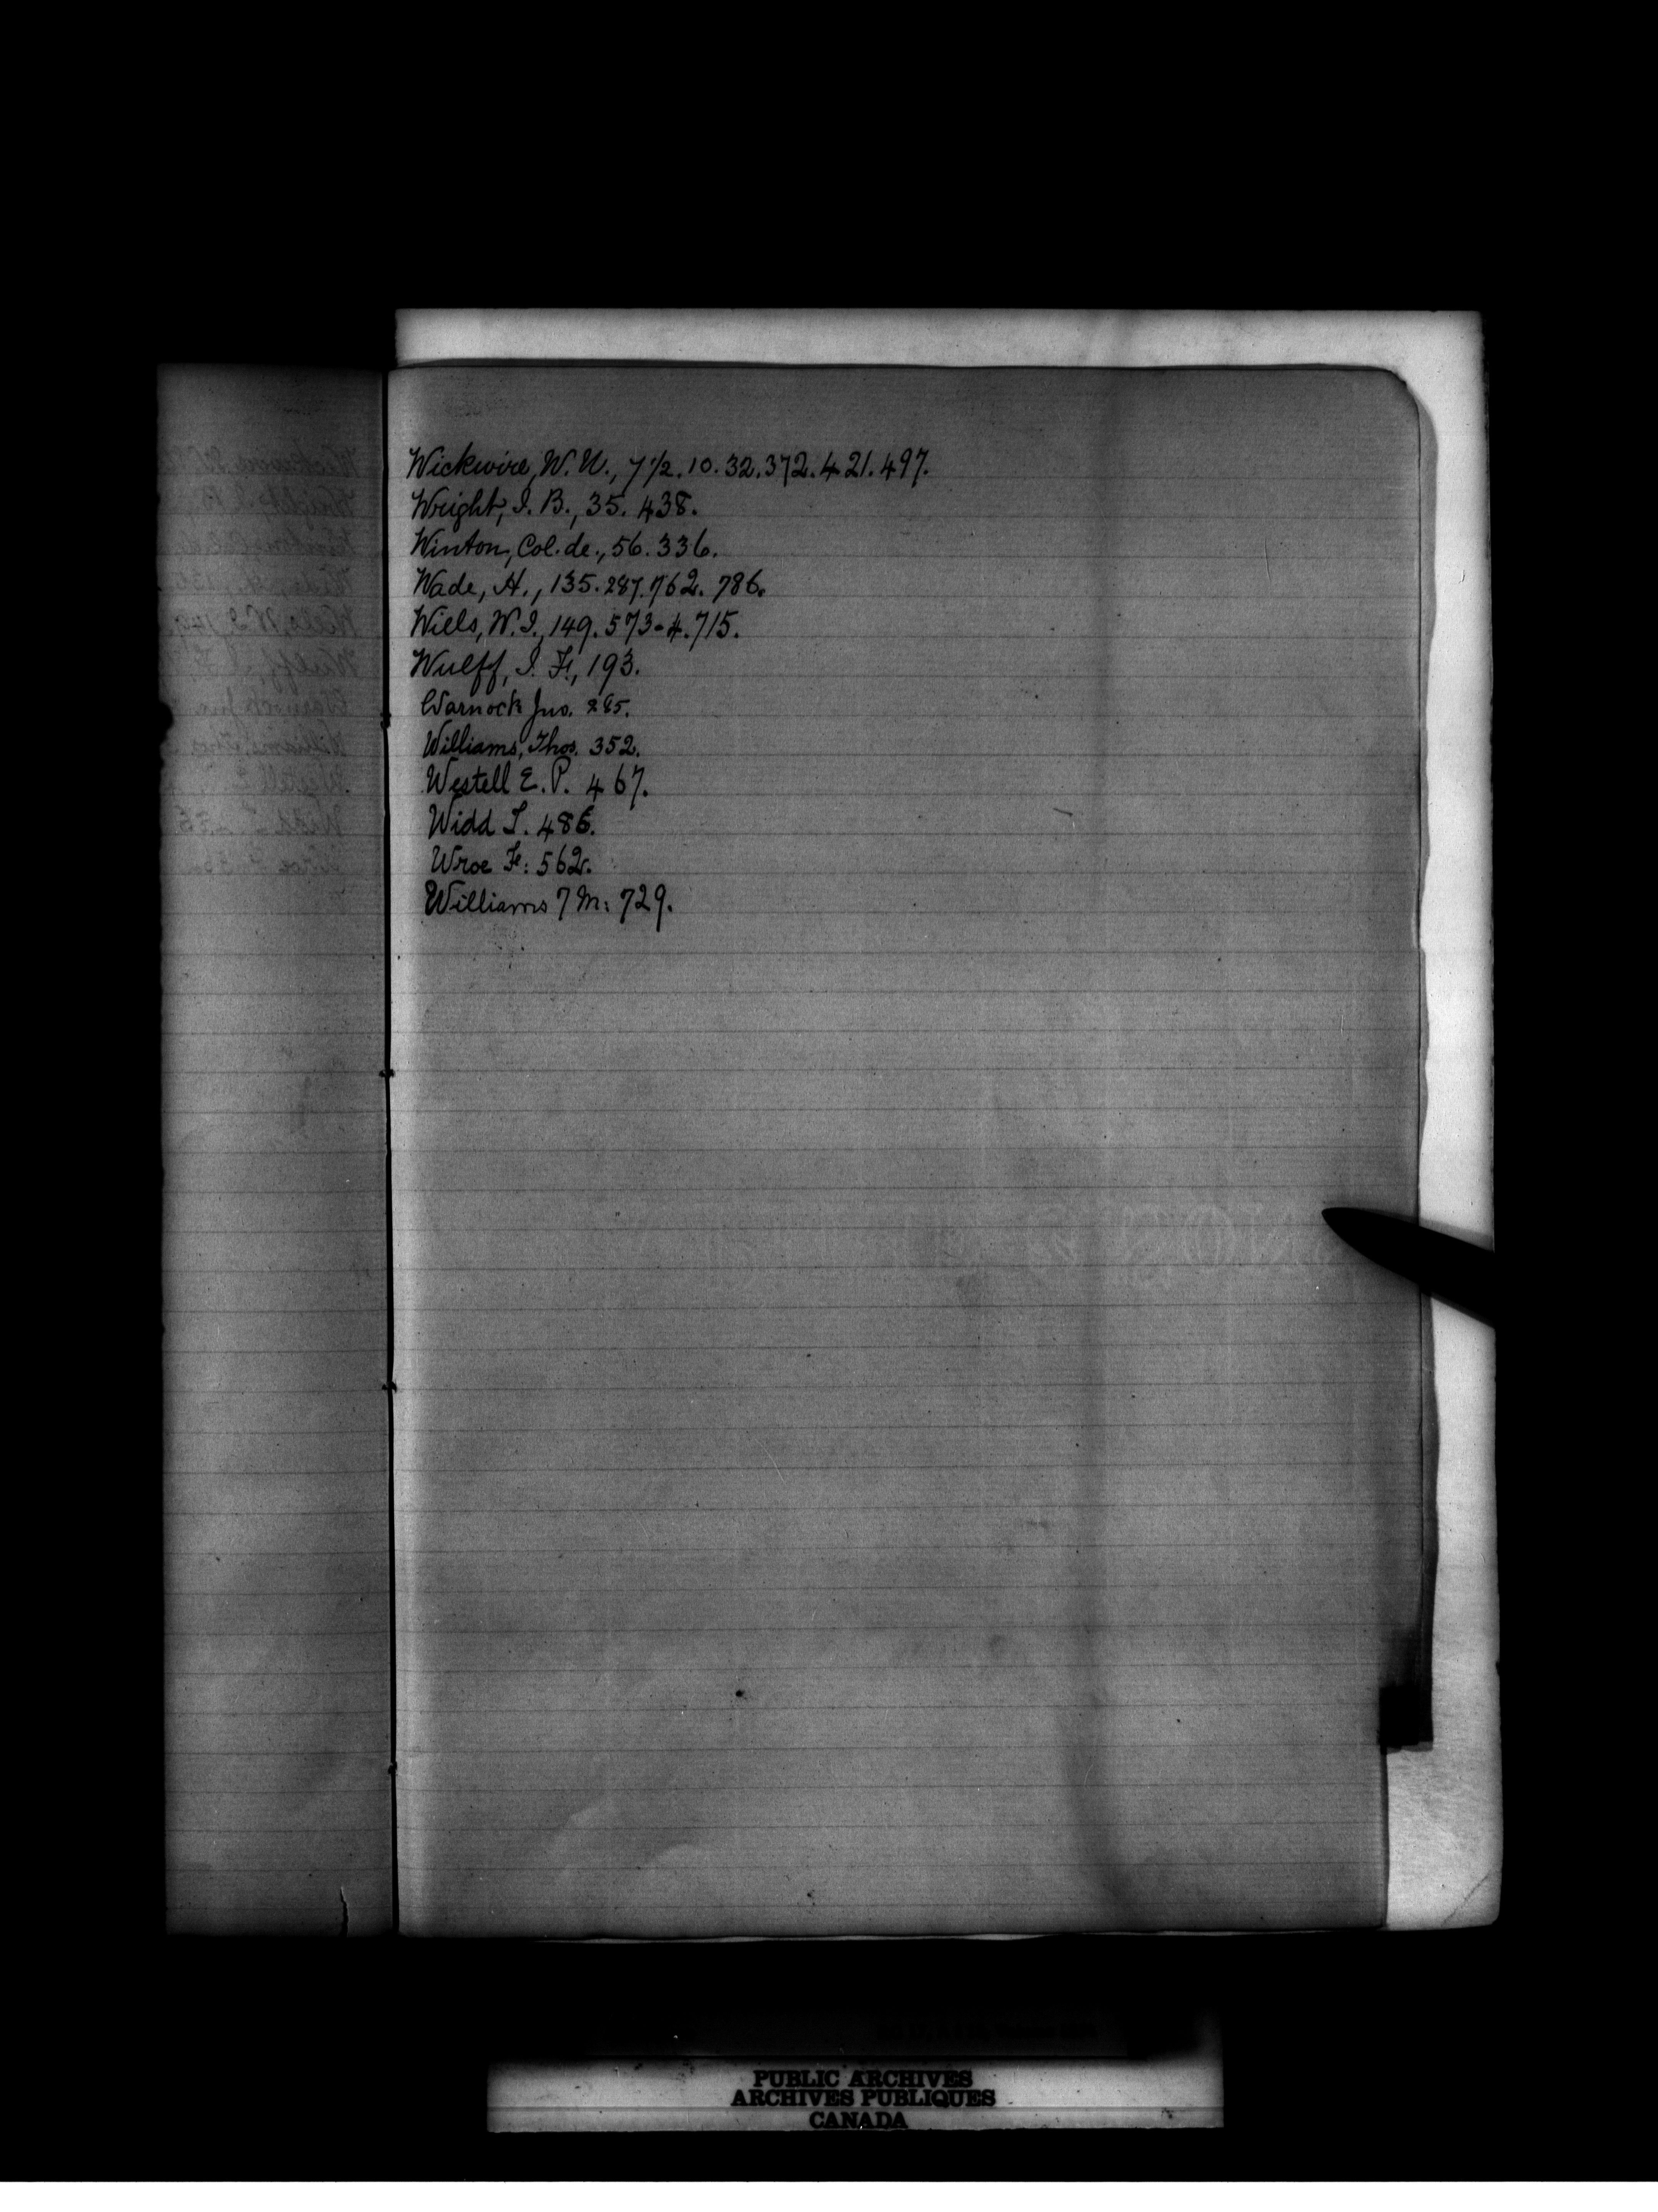 Wickwire, W. N., 7½. 10. 32. 372. 421. 497.
Wright, I. B., 35. 438.
Winton, Col. de., 56. 336.
Wade, H., 135. 287. 762. 786.
Wiels, W. I., 149. 573-4. 715.
Wulff, I. F., 193.
Warnock Jno. 285.
Williams, Thos. 352.
Westell E. P. 467.
Widd T. 486.
Wroe F: 562.
Williams 7 M: 729.
PUBLIC ARCHIVES
ARCHIVES PUBLIQUES
CANADA